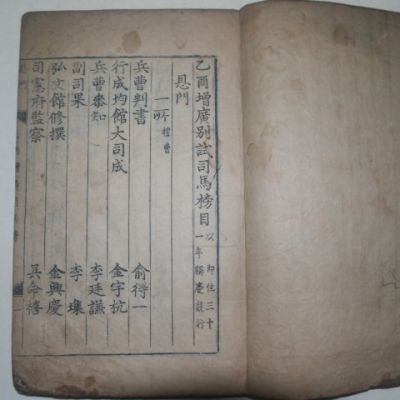 乙酉增廣別試司馬榜目 以卽位三十一年稱慶設行
恩門
一所 禮曹
兵曹判書 兪得一
行成均館大司成 金宇杭
兵曹參知 李廷謙
副司果 李
弘文館修撰 金興慶
司憲府監察 命